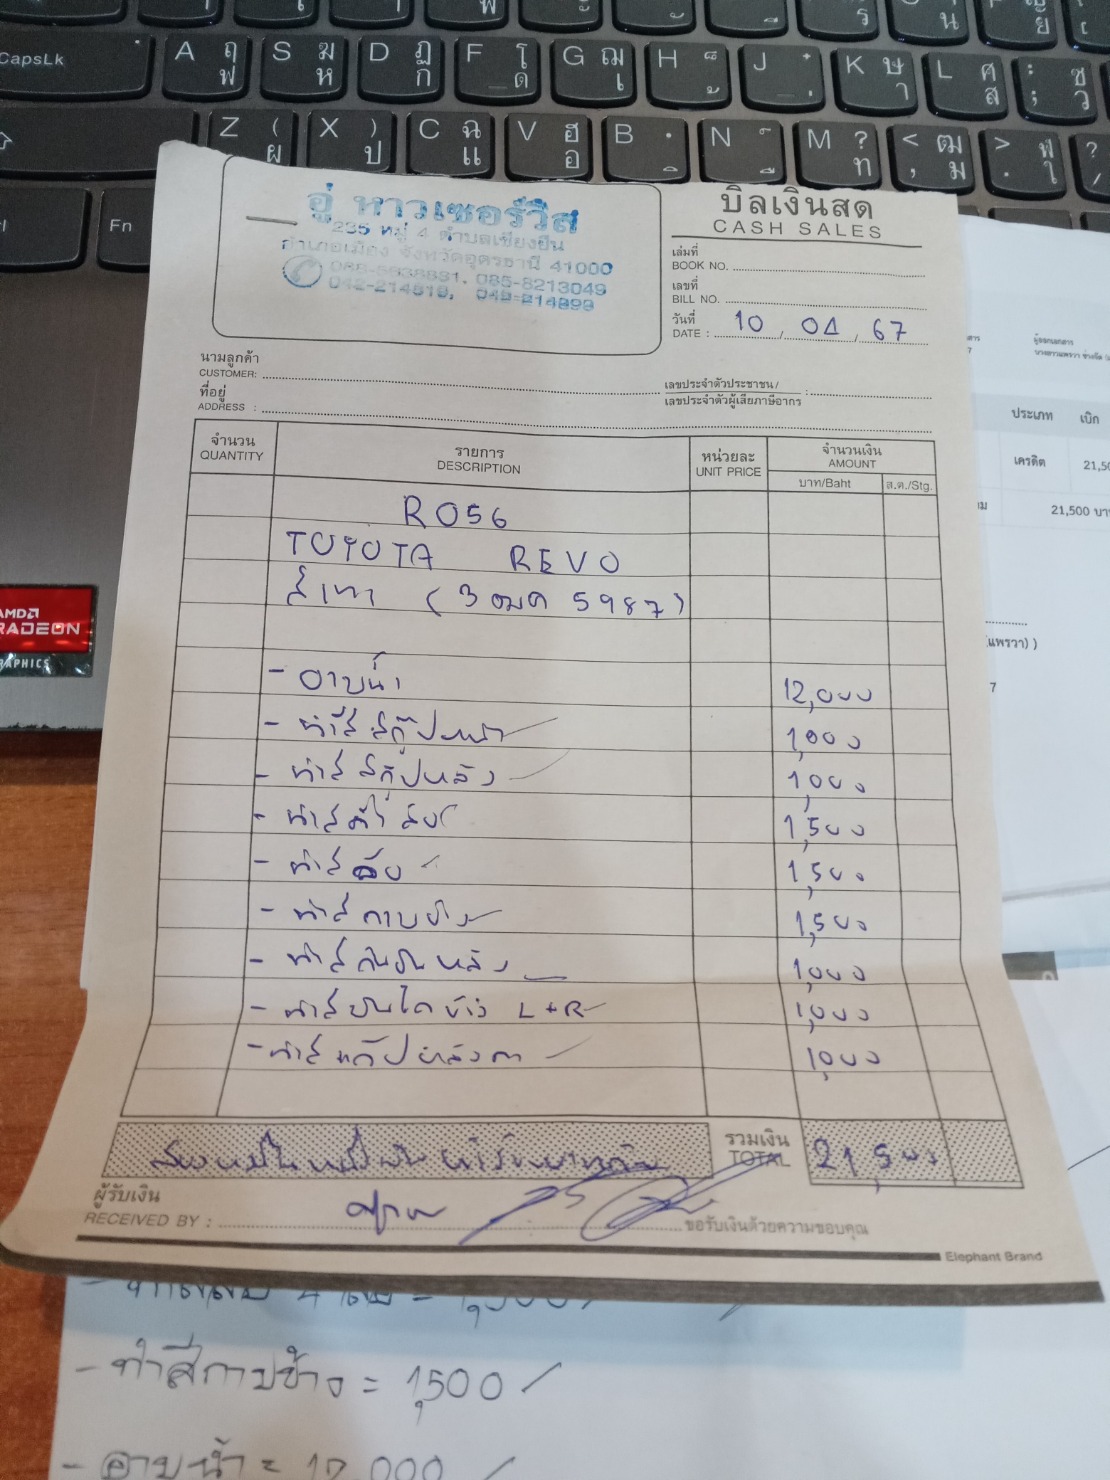 CapsLk
A ฤ ฟ
S ฆ ห
D ฏ ก
F โ ด
G ฌ เ
H ็ ้
J ๋ ่
K ษ า
L ศ ส
: ซ ; ว
Z ( ผ
X ) ป
C ฉ แ
V ฮ อ
B ฺ ิ
N ์ ื
M ? ท
< ฒ , ม
> ฬ . ใ
Fn
อู่ หาวเซอร์วิส
235 หมู่ 4 ตำบลเชียงยืน
อำเภอเมือง จังหวัดอุดรธานี 41000
085-8213049
บิลเงินสด
CASH SALES
เล่มที่
BOOK NO.
เลขที่
BILL NO.
วันที่
DATE : 10 / 04 / 67
นามลูกค้า
CUSTOMER:
ที่อยู่
ADDRESS :
เลขประจำตัวประชาชน/
เลขประจำตัวผู้เสียภาษีอากร
จำนวน รายการ หน่วยละ จำนวนเงิน
QUANTITY DESCRIPTION UNIT PRICE AMOUNT
บาท/Baht ส.ต./Stg.
R056
TOYOTA REVO
สีเทา (3ฒค 5987)
- อาบน้ำ 12,000
- ทำสีสกู๊ปหน้า 1,000
- ทำสีสกู๊ปหลัง 1,000
- ทำสี 1,500
- ทำสี 1,500
- ทำสีกาบข้าง 1,500
- ทำสีกันชนหลัง 1,000
- ทำสีบันไดข้าง L+R 1,000
- ทำสี หลังคา 1,000
สองหมื่นหนึ่งพันห้าร้อยบาทถ้วน
รวมเงิน
TOTAL 21,500
ผู้รับเงิน
RECEIVED BY :
ขอรับเงินด้วยความขอบคุณ
Elephant Brand
AMD
RADEON
GRAPHICS
ผู้ออกเอกสาร
ประเภท เบิก
เครดิต 21,5
21,500 บา
(แพรวา) )
7
- ทำสีกาบข้าง = 1,500 /
- อาบน้ำ = 12,000 /